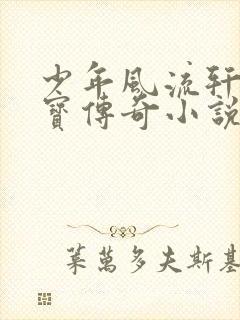 少年風流軒
寶傳奇小說
葉萬多夫斯基